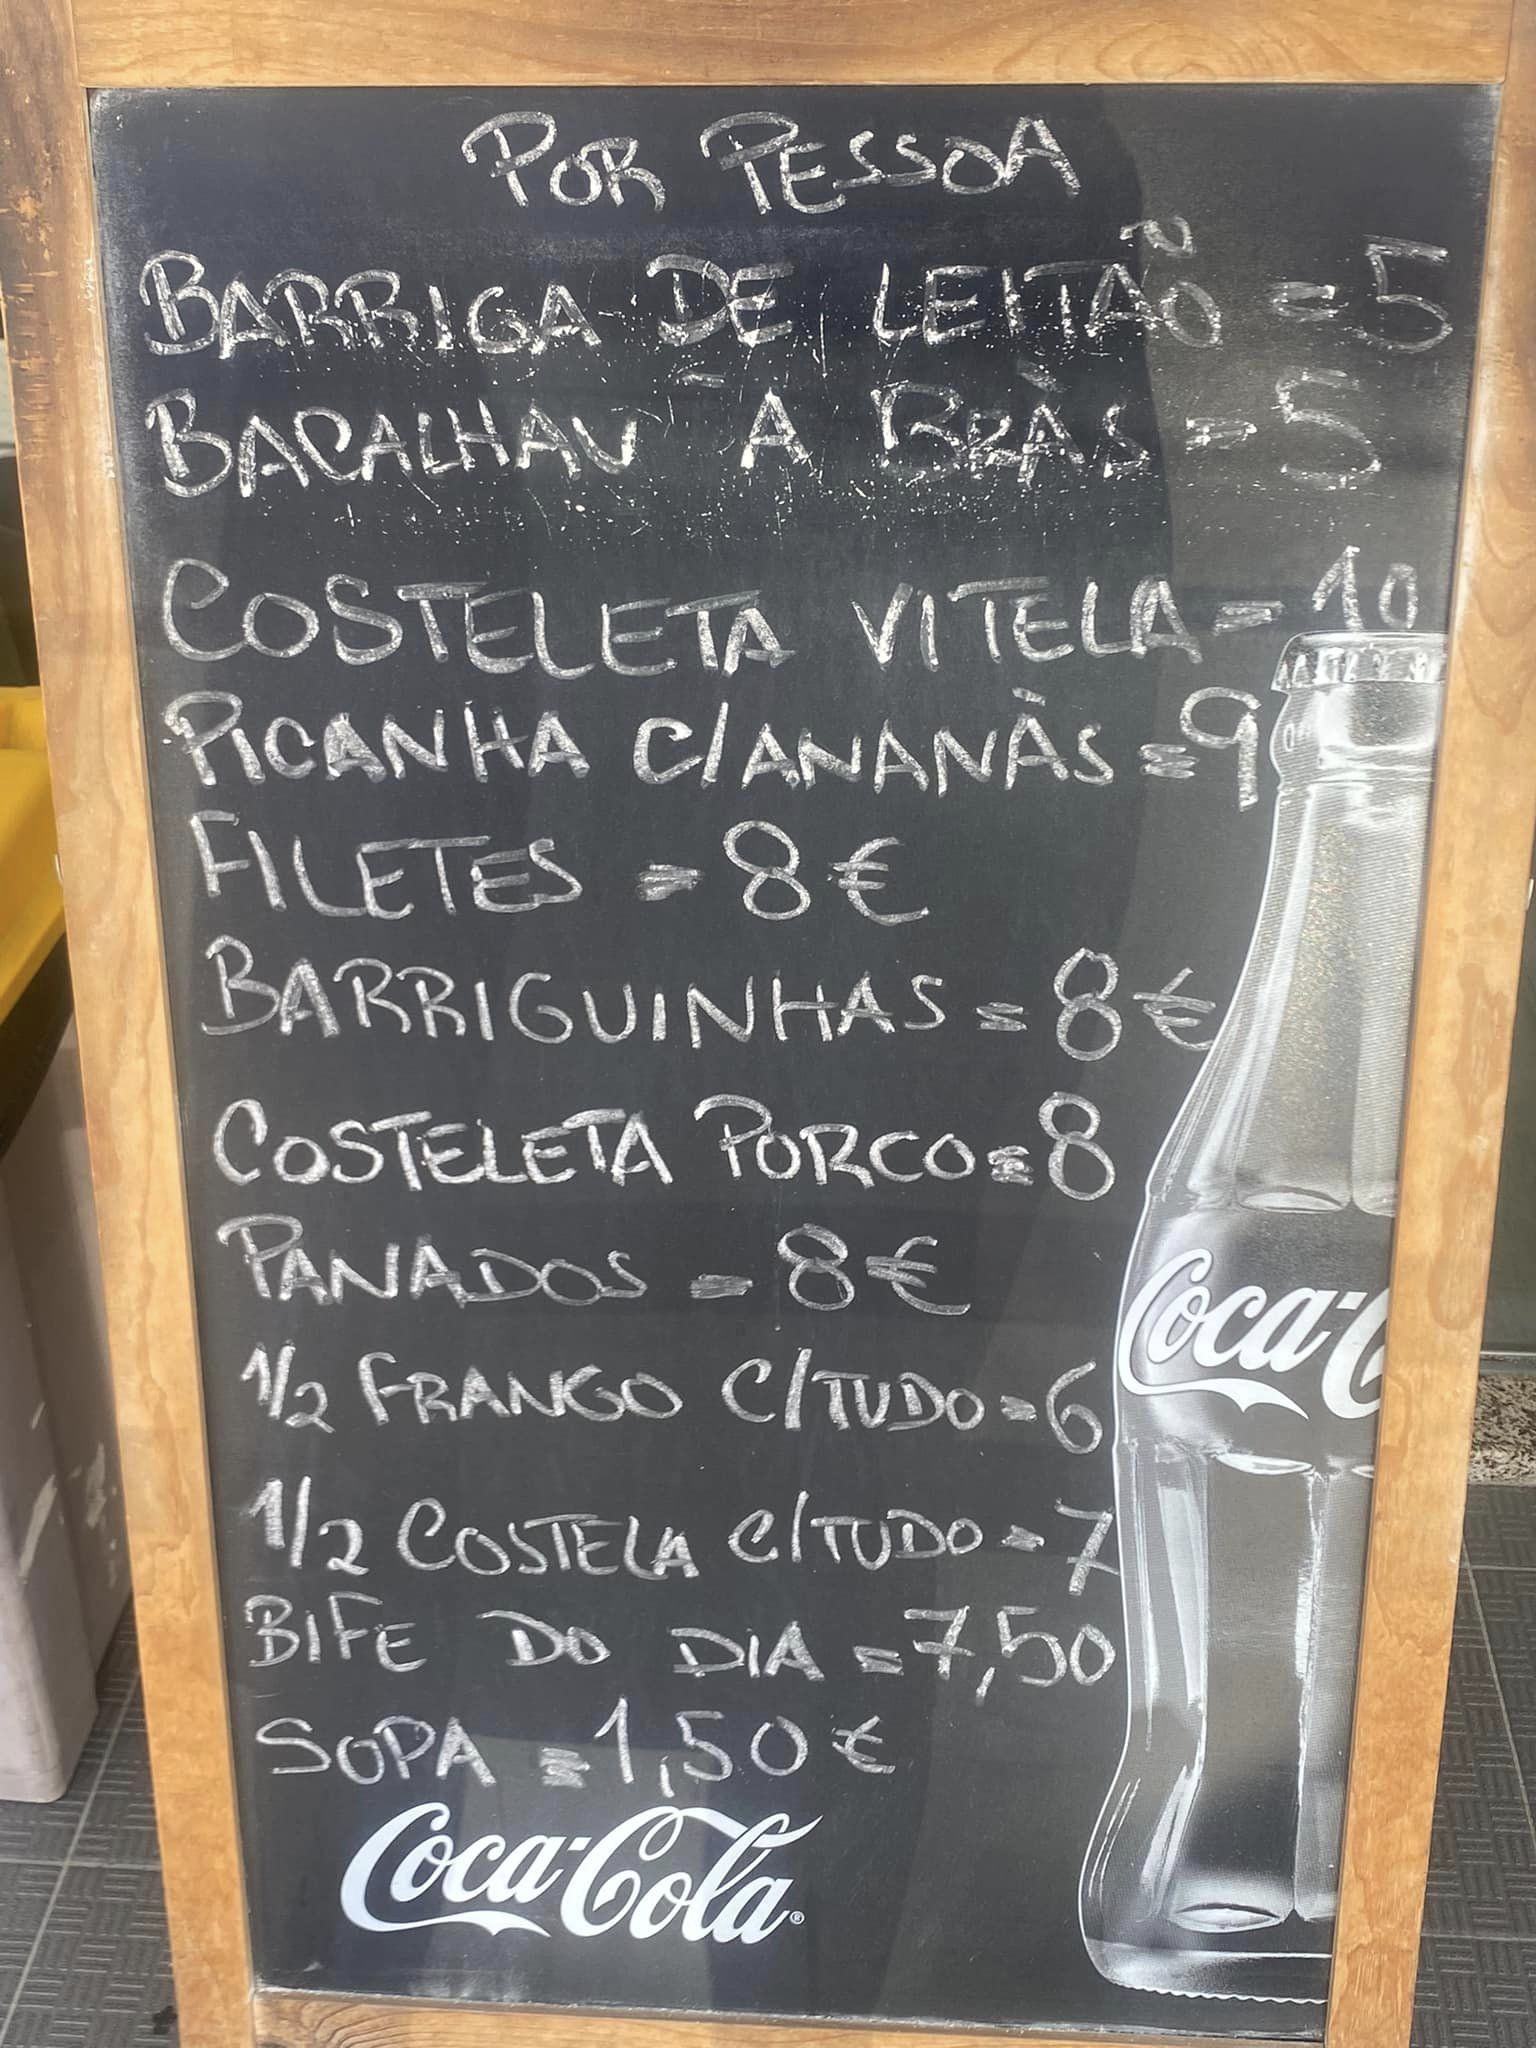 POR PESSOA
BARRIGA DE LEITÃO = 5
BACALHAU À BRÀS = 5
COSTELETA VITELA = 10
PICANHA C/ANANÀS = 9
FILETES = 8€
BARRIGUINHAS = 8€
COSTELETA PORCO = 8
PANADOS = 8€
1/2 FRANGO C/TUDO = 6
1/2 COSTELA C/TUDO = 7
BIFE DO DIA = 7,50
SOPA = 1,50€
Coca-Cola®
Coca-C